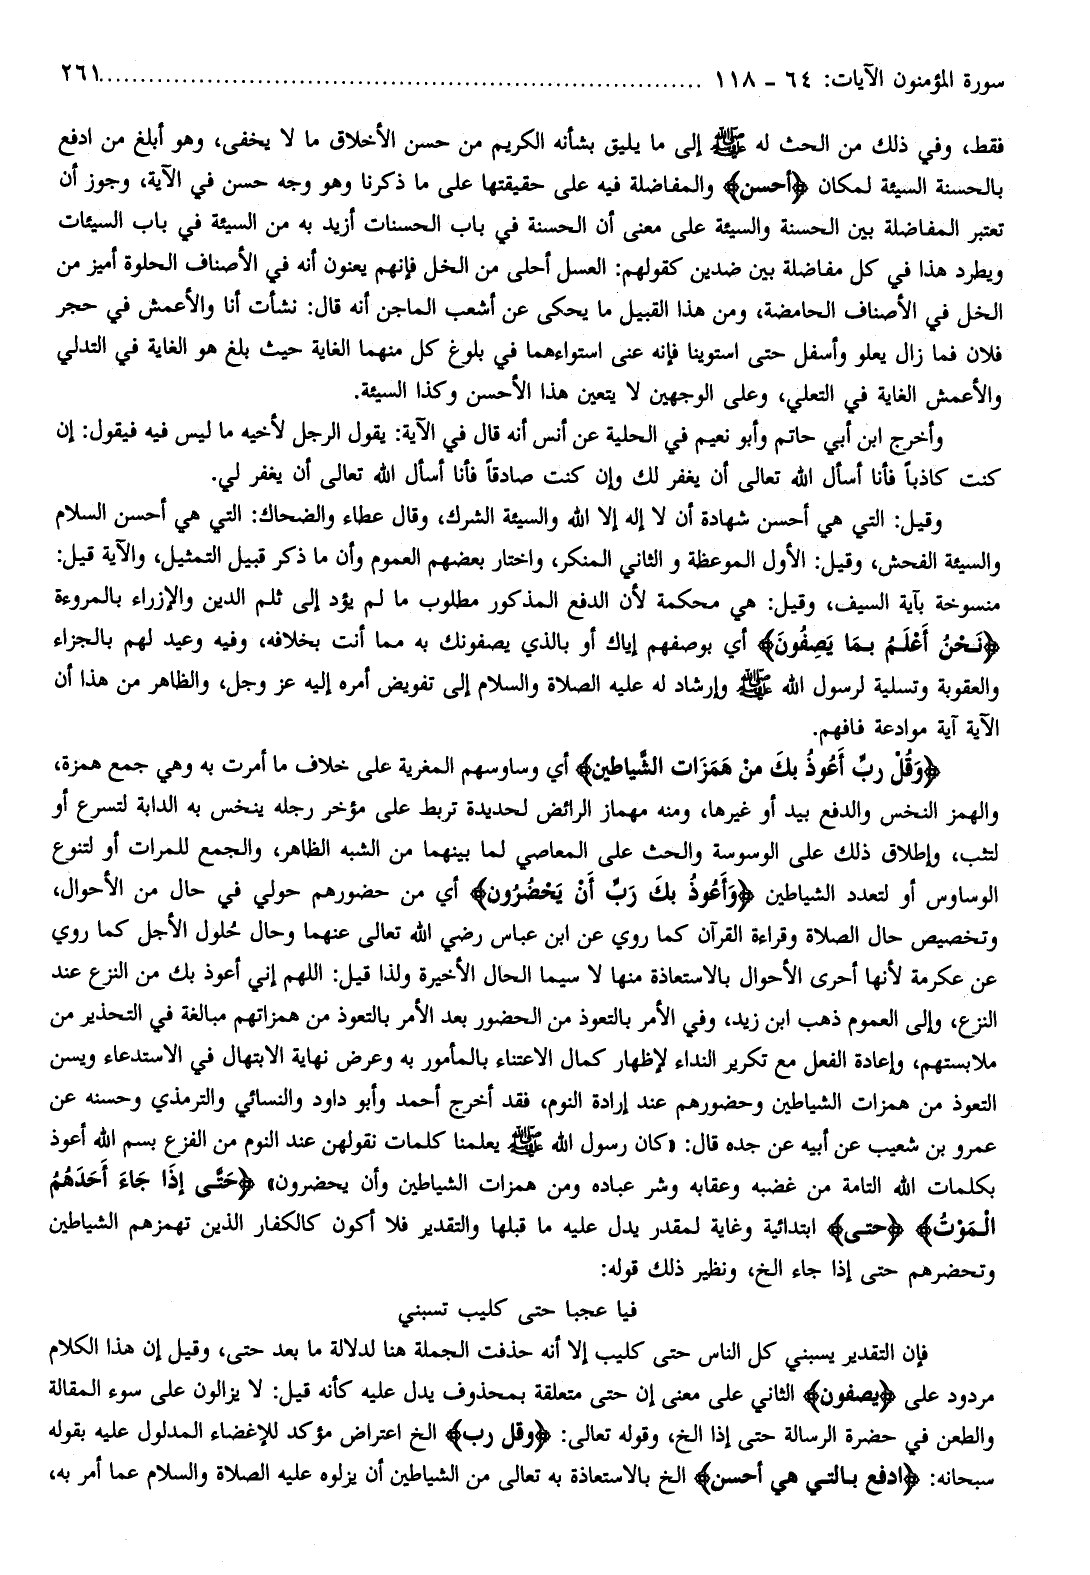 سورة المؤمنون الآيات: ٦٤ - ١١٨ ........................................................................ ٢٦١
فقط، وفي ذلك من الحث له ﷺ إلى ما يليق بشأنه الكريم من حسن الأخلاق ما لا يخفى، وهو أبلغ من ادفع
بالحسنة السيئة لمكان ﴿أحسن﴾ والمفاضلة فيه على حقيقتها على ما ذكرنا وهو وجه حسن في الآية، وجوز أن
تعتبر المفاضلة بين الحسنة والسيئة على معنى أن الحسنة في باب الحسنات أزيد به من السيئة في باب السيئات
ويطرد هذا في كل مفاضلة بين ضدين كقولهم: العسل أحلى من الخل فإنهم يعنون أنه في الأصناف الحلوة أميز من
الخل في الأصناف الحامضة، ومن هذا القبيل ما يحكى عن أشعب الماجن أنه قال: نشأت أنا والأعمش في حجر
فلان فما زال يعلو وأسفل حتى استوينا فإنه عنى استواءهما في بلوغ كل منهما الغاية حيث بلغ هو الغاية في التدلي
والأعمش الغاية في التعلي، وعلى الوجهين لا يتعين هذا الأحسن وكذا السيئة.
وأخرج ابن أبي حاتم وأبو نعيم في الحلية عن أنس أنه قال في الآية: يقول الرجل لأخيه ما ليس فيه فيقول: إن
كنت كاذباً فأنا أسأل الله تعالى أن يغفر لك وإن كنت صادقاً فأنا أسأل الله تعالى أن يغفر لي.
وقيل: التي هي أحسن شهادة أن لا إله إلا الله والسيئة الشرك، وقال عطاء والضحاك: التي هي أحسن السلام
والسيئة الفحش، وقيل: الأول الموعظة و الثاني المنكر، واختار بعضهم العموم وأن ما ذكر قبيل التمثيل، والآية قيل:
منسوخة بآية السيف، وقيل: هي محكمة لأن الدفع المذكور مطلوب ما لم يؤد إلى ثلم الدين والإزراء بالمروءة
﴿نَحْنُ أَعْلَمُ بِمَا يَصِفُونَ﴾ أي بوصفهم إياك أو بالذي يصفونك به مما أنت بخلافه، وفيه وعيد لهم بالجزاء
والعقوبة وتسلية لرسول الله ﷺ وإرشاد له عليه الصلاة والسلام إلى تفويض أمره إليه عز وجل، والظاهر من هذا أن
الآية آية موادعة فافهم.
﴿وَقُلْ ربِّ أَعُوذُ بكَ منْ هَمَزَات الشَّياطين﴾ أي وساوسهم المغرية على خلاف ما أمرت به وهي جمع همزة،
والهمز النخس والدفع بيد أو غيرها، ومنه مهماز الرائض لحديدة تربط على مؤخر رجله ينخس به الدابة لتسرع أو
لتثب، وإطلاق ذلك على الوسوسة والحث على المعاصي لما بينهما من الشبه الظاهر، والجمع للمرات أو لتنوع
الوساوس أو لتعدد الشياطين ﴿وَأَعُوذُ بكَ رَبِّ أَنْ يَحْضُرُون﴾ أي من حضورهم حولي في حال من الأحوال،
وتخصيص حال الصلاة وقراءة القرآن كما روي عن ابن عباس رضي الله تعالى عنهما وحال حُلول الأجل كما روي
عن عكرمة لأنها أحرى الأحوال بالاستعاذة منها لا سيما الحال الأخيرة ولذا قيل: اللهم إني أعوذ بك من النزع عند
النزع، وإلى العموم ذهب ابن زيد، وفي الأمر بالتعوذ من الحضور بعد الأمر بالتعوذ من همزاتهم مبالغة في التحذير من
ملابستهم، وإعادة الفعل مع تكرير النداء لإظهار كمال الاعتناء بالمأمور به وعرض نهاية الابتهال في الاستدعاء ويسن
التعوذ من همزات الشياطين وحضورهم عند إرادة النوم، فقد أخرج أحمد وأبو داود والنسائي والترمذي وحسنه عن
عمرو بن شعيب عن أبيه عن جده قال: «كان رسول الله ﷺ يعلمنا كلمات نقولهن عند النوم من الفزع بسم الله أعوذ
بكلمات الله التامة من غضبه وعقابه وشر عباده ومن همزات الشياطين وأن يحضرون» ﴿حَتَّى إذَا جَاءَ أَحَدَهُمُ
الْمَوْتُ﴾ ﴿حتى﴾ ابتدائية وغاية لمقدر يدل عليه ما قبلها والتقدير فلا أكون كالكفار الذين تهمزهم الشياطين
وتحضرهم حتى إذا جاء الخ، ونظير ذلك قوله:
فيا عجبا حتى كليب تسبني
فإن التقدير يسبني كل الناس حتى كليب إلا أنه حذفت الجملة هنا لدلالة ما بعد حتى، وقيل إن هذا الكلام
مردود على ﴿يصفون﴾ الثاني على معنى إن حتى متعلقة بمحذوف يدل عليه كأنه قيل: لا يزالون على سوء المقالة
والطعن في حضرة الرسالة حتى إذا الخ، وقوله تعالى: ﴿وقل رب﴾ الخ اعتراض مؤكد للإغضاء المدلول عليه بقوله
سبحانه: ﴿ادفع بالتي هي أحسن﴾ الخ بالاستعاذة به تعالى من الشياطين أن يزلوه عليه الصلاة والسلام عما أمر به،